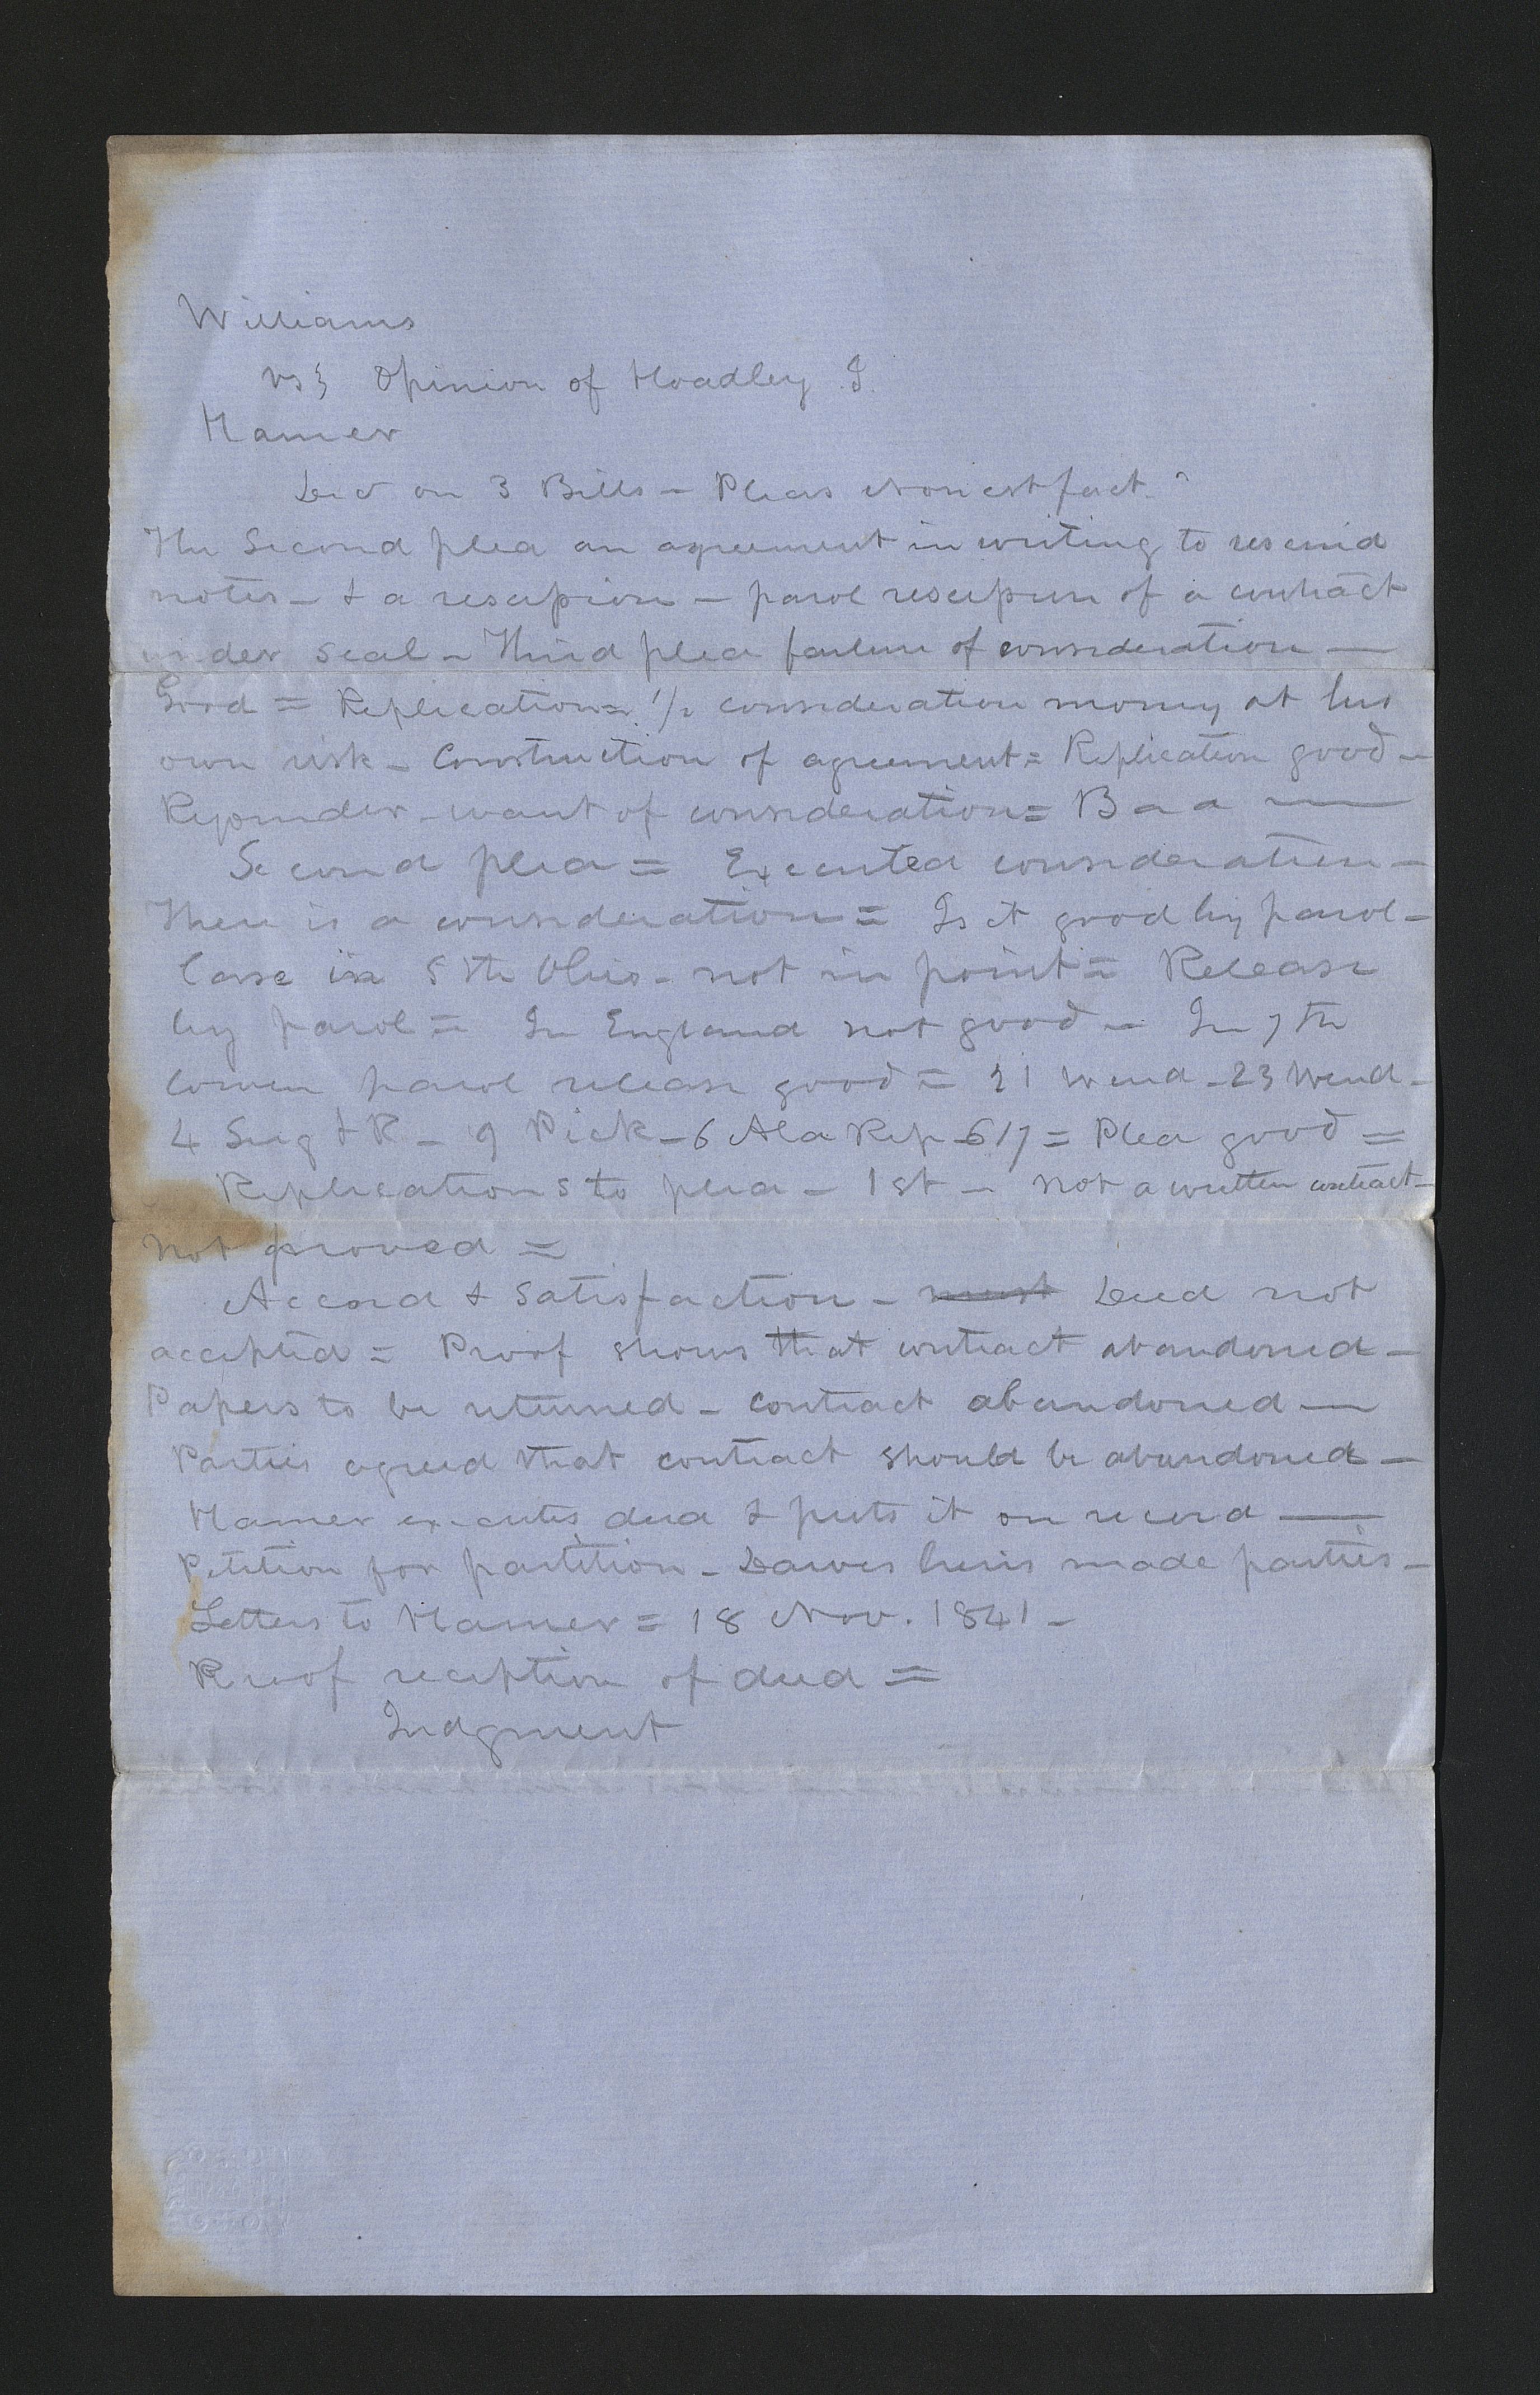 Williams
vs } Opinion of Hoadley J.
Hamer
on 3 Bills - Pleas Non est fact.
The Second plea an agreement in writing to rescind
notes - & a rescision - parol rescision of a contract
under seal - Third plea failure of consideration —
Good = Replication = 1/2 consideration money at his
own risk - Construction of agreement = Replication good -
Rejoinder - want of consideration = Bad —
Second plea = Executed consideration -
There is a consideration = Is it good by parol -
Case in 5th Ohio - not in point = Release
by parol = In England not good - In 7th
Cowen parol release good = 21 Wend - 23 Wend -
4 Serg & R - 9 Pick - 6 Ala Rep - 617 = Plea good =
Replications to plea - 1st - not a written contract -
Not proved =
Accord & Satisfaction - must Deed not
accepted = Proof shows that contract abandoned -
Papers to be returned - contract abandoned —
Parties agreed that contract should be abandoned -
Hamer executes deed & puts it on record —
Petition for partition - Dawes heirs made parties -
Letters to Hamer = 18 Nov. 1841 -
Proof reception of deed =
Judgment